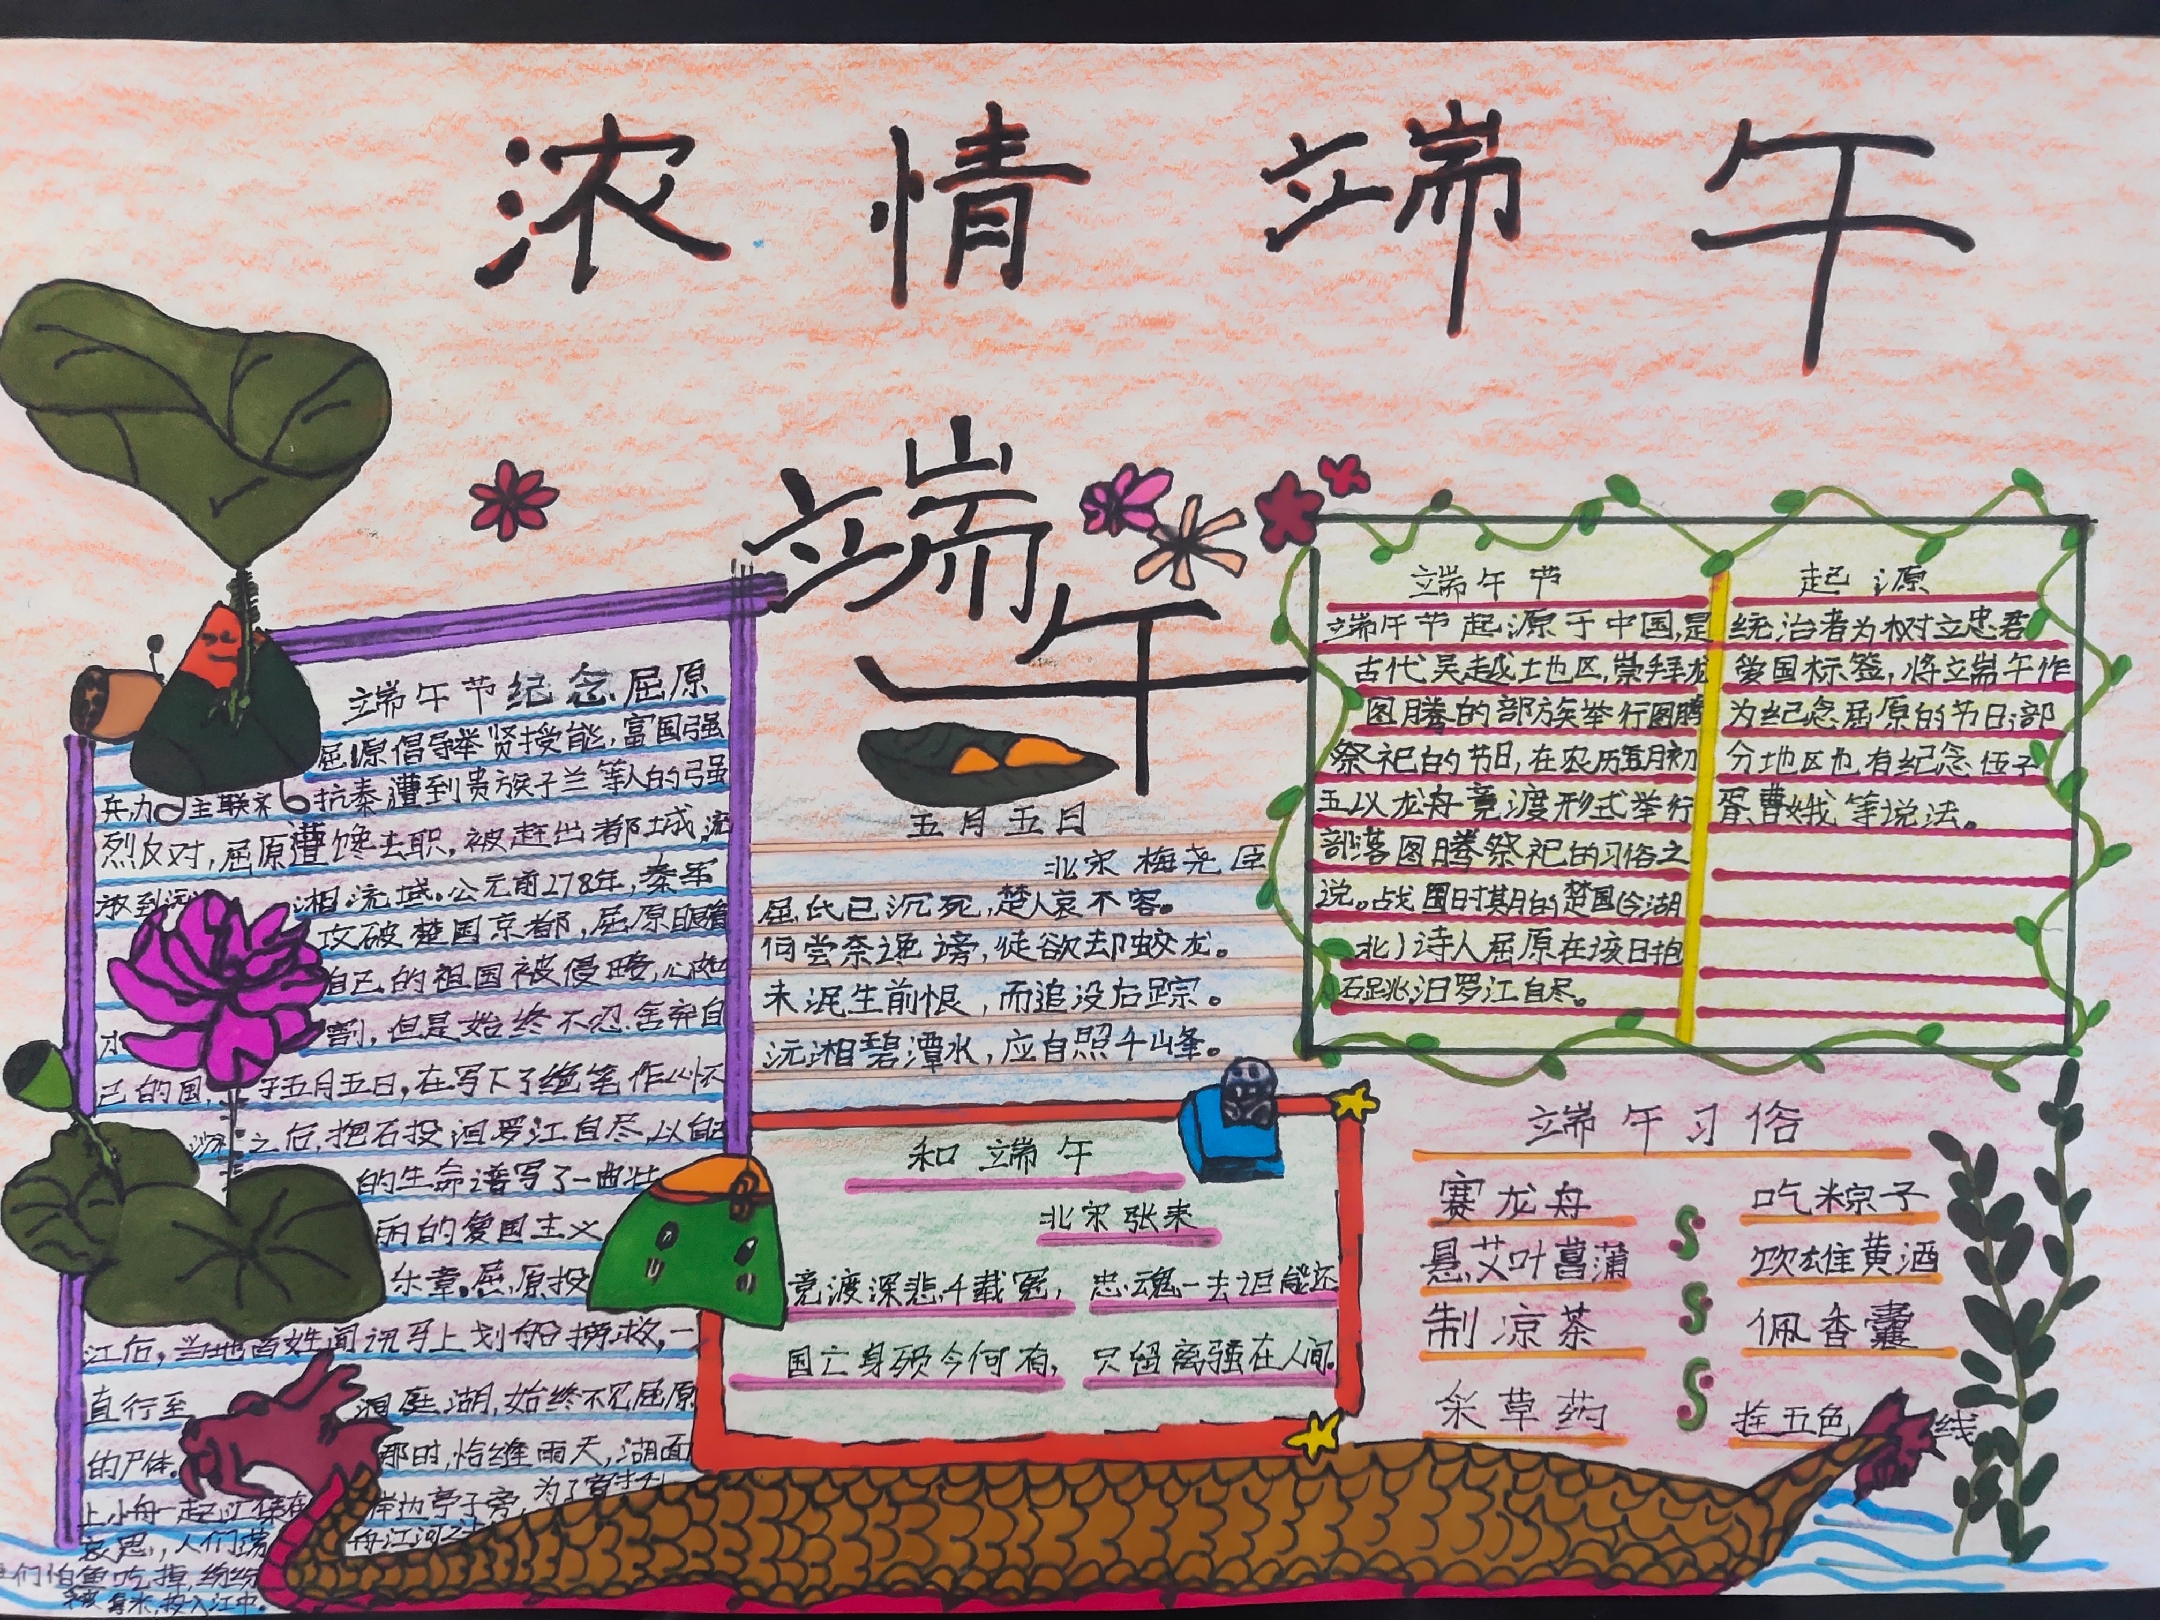 浓情端午
端午
端午节纪念屈原
屈原倡导举贤授能,富国强
兵,力主联齐抗秦遭到贵族子兰等人的强
烈反对,屈原遭馋去职,被赶出都城,流
放到沅湘流域。公元前278年,秦军
攻破楚国京都,屈原眼睹
自己的祖国被侵略,心如
割,但是始终不忍舍弃自
己的国,于五月五日,在写下了绝笔作《怀
沙》之后,抱石投汩罗江自尽,以自己
的生命谱写了一曲壮
丽的爱国主义
乐章。屈原投
江后,当地百姓闻讯马上划船捞救,一
直行至洞庭湖,始终不见屈原
的尸体。那时,恰缝雨天,湖面
上小舟一起汇保在岸边亭子旁,为了寄托
哀思,人们荡舟江河之
们怕鱼吃掉,纷纷
拿米,投入江中。
五月五日
北宋 梅尧臣
屈氏已沉死,楚人哀不容。
何尝奈谗谤,徒欲却蛟龙。
未泯生前恨,而追没后踪。
沅湘碧潭水,应自照千山峰。
和端午
北宋张耒
竞渡深悲千载冤, 忠魂一去讵能还
国亡身殒今何有, 只留离骚在人间。
端午节
端午节起源于中国,是
古代吴越土地区,崇拜龙
图腾的部族举行图腾
祭祀的节日,在农历五月初
五以龙舟竞渡形式举行
部落图腾祭祀的习俗之
说。战国时期的楚国(今湖
北)诗人屈原在该日抱
石跳汩罗江自尽。
起源
统治者为树立忠君
爱国标签,将端午作
为纪念屈原的节日;部
分地区也有纪念伍子
胥曹娥等说法。
端午习俗
赛龙舟 吃粽子
悬艾叶菖蒲 饮雄黄酒
制凉茶 佩香囊
采草药 拴五色线